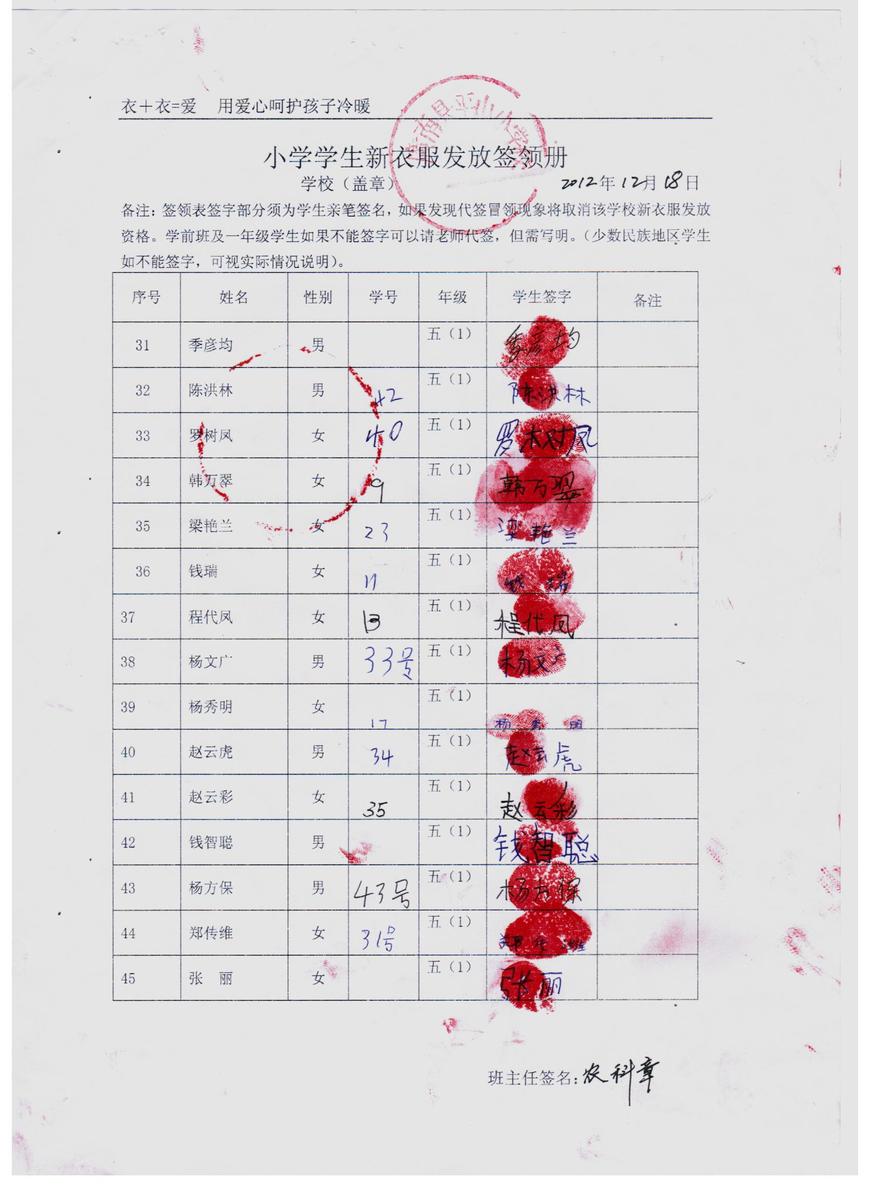 衣＋衣=爱 用爱心呵护孩子冷暖
小学学生新衣服发放签领册
学校（盖章） 2012年12月18日
备注：签领表签字部分须为学生亲笔签名，如果发现代签冒领现象将取消该学校新衣服发放
资格。学前班及一年级学生如果不能签字可以请老师代签，但需写明。（少数民族地区学生
如不能签字，可视实际情况说明）。
序号 姓名 性别 学号 年级 学生签字 备注
31 季彦均 男 五（1） 季彦均
32 陈洪林 男 42 五（1） 陈洪林
33 罗树凤 女 40 五（1） 罗树凤
34 韩万翠 女 9 五（1） 韩万翠
35 梁艳兰 女 23 五（1） 梁艳兰
36 钱瑞 女 11 五（1） 钱瑞
37 程代凤 女 13 五（1） 程代凤
38 杨文广 男 33号 五（1） 杨文广
39 杨秀明 女 17 五（1） 杨秀明
40 赵云虎 男 34 五（1） 赵云虎
41 赵云彩 女 35 五（1） 赵云彩
42 钱智聪 男 五（1） 钱智聪
43 杨方保 男 43号 五（1） 杨方保
44 郑传维 女 31号 五（1） 郑传维
45 张 丽 女 五（1） 张丽
班主任签名：农科章